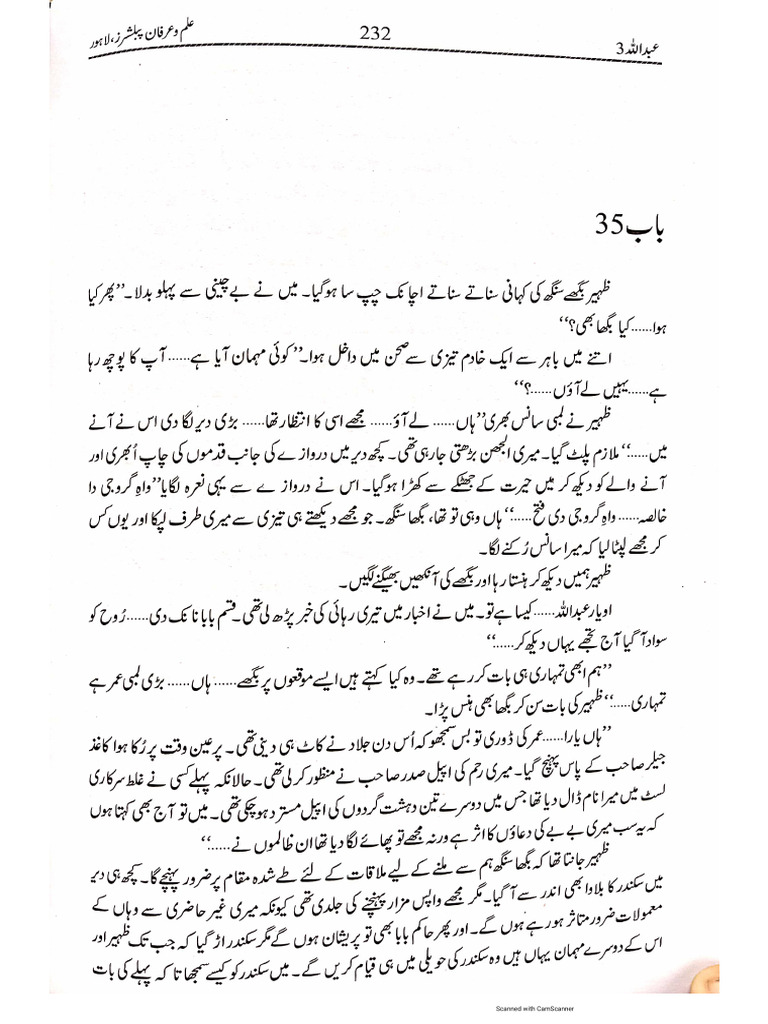 عبداللہ 3
232
علم و عرفان پبلشرز، لاہور
باب 35
ظہیر بگھے سنگھ کی کہانی سناتے سناتے اچانک چپ سا ہوگیا۔ میں نے بے چینی سے پہلو بدلا۔ ’’پھر کیا
ہوا...... کیا بگھا بھی؟‘‘
اتنے میں باہر سے ایک خادم تیزی سے صحن میں داخل ہوا۔ ’’کوئی مہمان آیا ہے...... آپ کا پوچھ رہا
ہے...... یہیں لے آؤں......؟‘‘
ظہیر نے لمبی سانس بھری ’’ہاں...... لے آؤ...... مجھے اسی کا انتظار تھا...... بڑی دیر لگا دی اس نے آنے
میں.....‘‘ ملازم پلٹ گیا۔ میری الجھن بڑھتی جا رہی تھی۔ کچھ دیر میں دروازے کی جانب قدموں کی چاپ اُبھری اور
آنے والے کو دیکھ کر میں حیرت کے جھٹکے سے کھڑا ہوگیا۔ اس نے دروازے سے یہی نعرہ لگایا ’’واہِ گرو جی دا
خالصہ...... واہِ گرو جی دی فتح......‘‘ ہاں وہی تو تھا، بگھا سنگھ۔ جو مجھے دیکھتے ہی تیزی سے میری طرف لپکا اور یوں کس
کر مجھے لپٹا لیا کہ میرا سانس رُکنے لگا۔
ظہیر ہمیں دیکھ کر ہنستا رہا اور بگھے کی آنکھیں بھیگنے لگیں۔
او یار عبداللہ...... کیسا ہے تو۔ میں نے اخبار میں تیری رہائی کی خبر پڑھ لی تھی۔ قسم بابا نانک دی...... رُوح کو
سواد آ گیا آج تجھے یہاں دیکھ کر......‘‘
’’ہم ابھی تمہاری ہی بات کر رہے تھے۔ وہ کیا کہتے ہیں ایسے موقعوں پر بگھے...... ہاں...... بڑی لمبی عمر ہے
تمہاری.....‘‘ ظہیر کی بات سن کر بگھا بھی ہنس پڑا۔
’’ہاں یارا...... عمر کی ڈوری تو بس سمجھو کہ اُس دن جلاد نے کاٹ ہی دینی تھی۔ پر عین وقت پر رُکا ہوا کاغذ
جیلر صاحب کے پاس پہنچ گیا۔ میری رحم کی اپیل صدر صاحب نے منظور کر لی تھی۔ حالانکہ پہلے کسی نے غلط سرکاری
لسٹ میں میرا نام ڈال دیا تھا جس میں دوسرے تین دہشت گردوں کی اپیل مسترد ہو چکی تھی۔ میں تو آج بھی کہتا ہوں
کہ یہ سب میری بے بے کی دعاؤں کا اثر ہے ورنہ مجھے تو پھائے لگا دیا تھا ان ظالموں نے.....‘‘
ظہیر جانتا تھا کہ بگھا سنگھ ہم سے ملنے کے لیے ملاقات کے لئے طے شدہ مقام پر ضرور پہنچے گا۔ کچھ ہی دیر
میں سکندر کا بلاوا بھی اندر سے آ گیا۔ مگر مجھے واپس مزار پہنچنے کی جلدی تھی کیونکہ میری غیر حاضری سے وہاں کے
معمولات ضرور متاثر ہو رہے ہوں گے۔ اور پھر حاکم بابا بھی تو پریشان ہوں گے مگر سکندر اڑ گیا کہ جب تک ظہیر اور
اس کے دوسرے مہمان یہاں ہیں وہ سکندر کی حویلی میں ہی قیام کریں گے۔ میں سکندر کو کیسے سمجھاتا کہ پہلے کی بات
Scanned with CamScanner